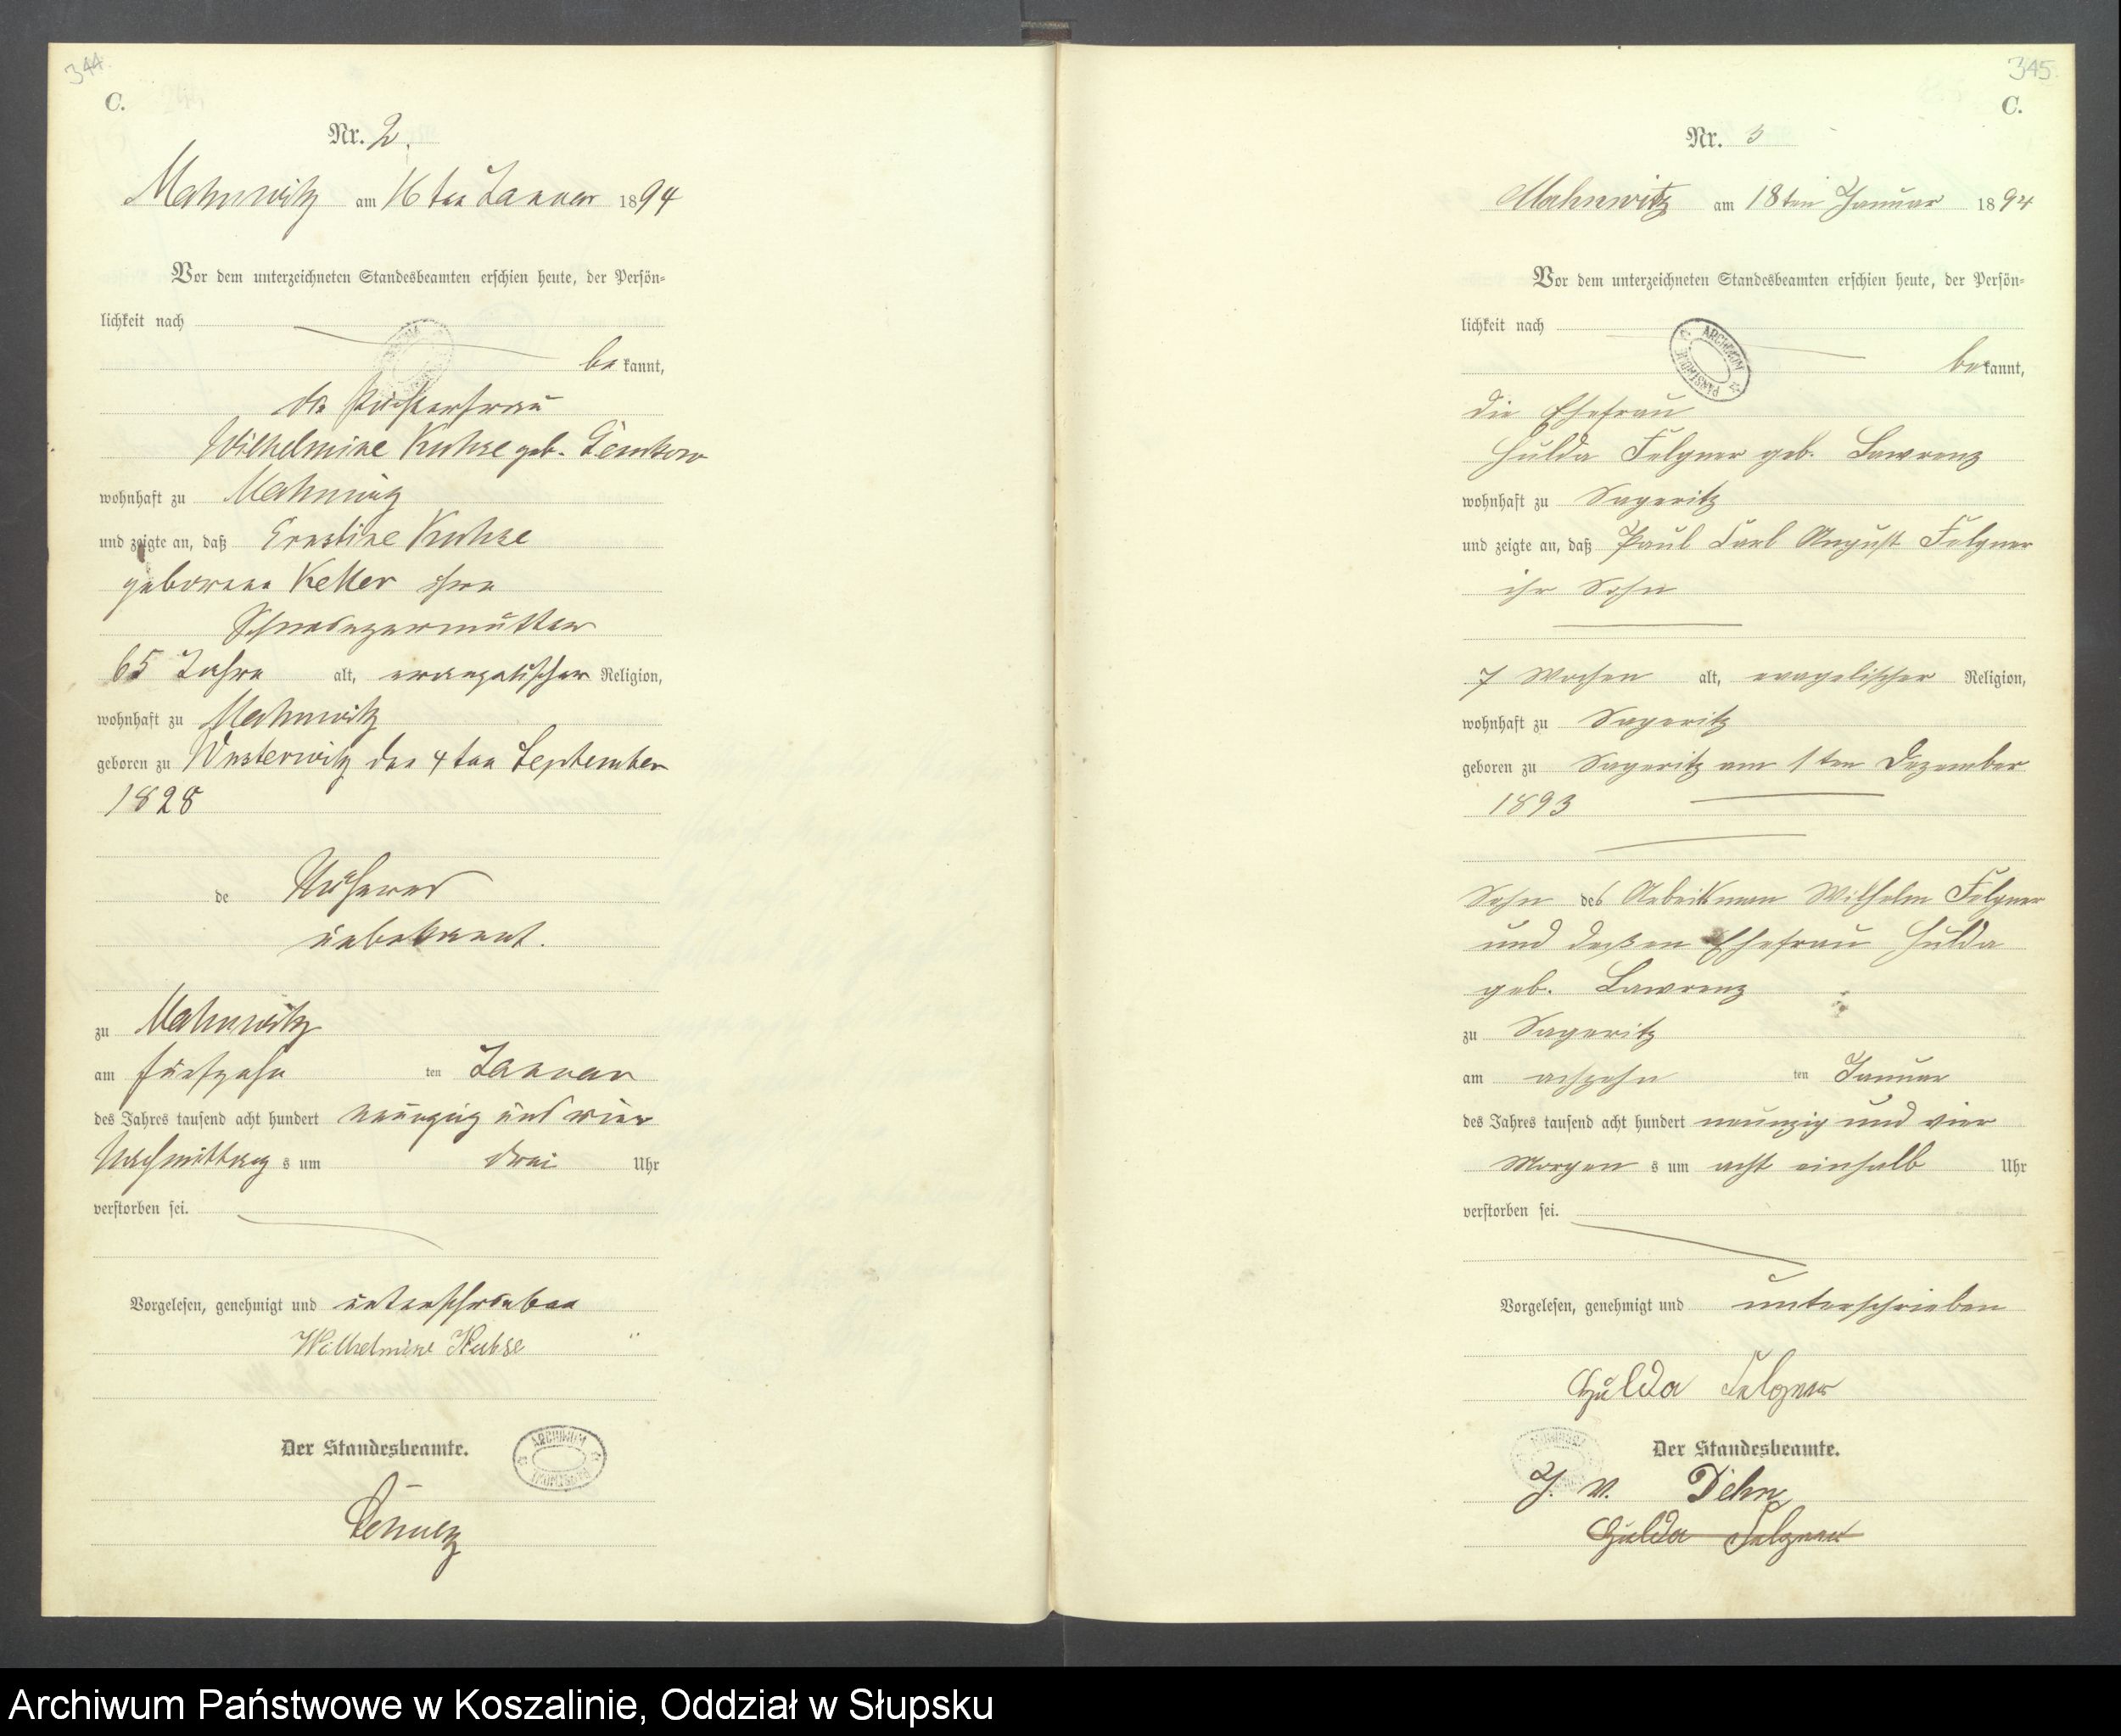 344.
C.
Nr. 2.
Mahnwitz am 16ten Januar 1894
Vor dem unterzeichneten Standesbeamten erschien heute, der Persön-
lichkeit nach
bekannt,
die
Wilhelmine Kuhse geb.
wohnhaft zu Mahnwitz
und zeigte an, daß Ernstine Kuhse
geborene Keller ihre
Schwiegermutter
65 Jahre alt, evangelischer Religion,
wohnhaft zu Mahnwitz
geboren zu Wusterwitz den 4ten September
1828
de Näheres
unbekannt.
zu Mahnwitz
am fünfzehn ten Januar
des Jahres tausend acht hundert neunzig und vier
Nachmittag s um drei Uhr
verstorben sei.
Vorgelesen, genehmigt und unterschrieben
Wilhelmine Kuhse
Der Standesbeamte.
ARCHIWUM PAŃSTWOWE
345.
C.
Nr. 3
Mahnwitz am 18ten Januar 1894
Vor dem unterzeichneten Standesbeamten erschien heute, der Persön-
lichkeit nach
bekannt,
die Ehefrau
Hulda Felgner geb. Lawrenz
wohnhaft zu Sageritz
und zeigte an, daß Paul Carl August Felgner
ihr Sohn
7 Wochen alt, evagelischer Religion,
wohnhaft zu Sageritz
geboren zu Sageritz am 1ten Dezember
1893
Sohn des Arbeitsman Wilhelm Felgner
und deßen Ehefrau Hulda
geb. Lawrenz
zu Sageritz
am achzehn ten Januar
des Jahres tausend acht hundert neunzig und vier
Morgen s um acht einhalb Uhr
verstorben sei.
Vorgelesen, genehmigt und unterschrieben
Hulda Felgner
Der Standesbeamte.
J. V. Dehn
Hulda Felgner
Archiwum Państwowe w Koszalinie, Oddział w Słupsku